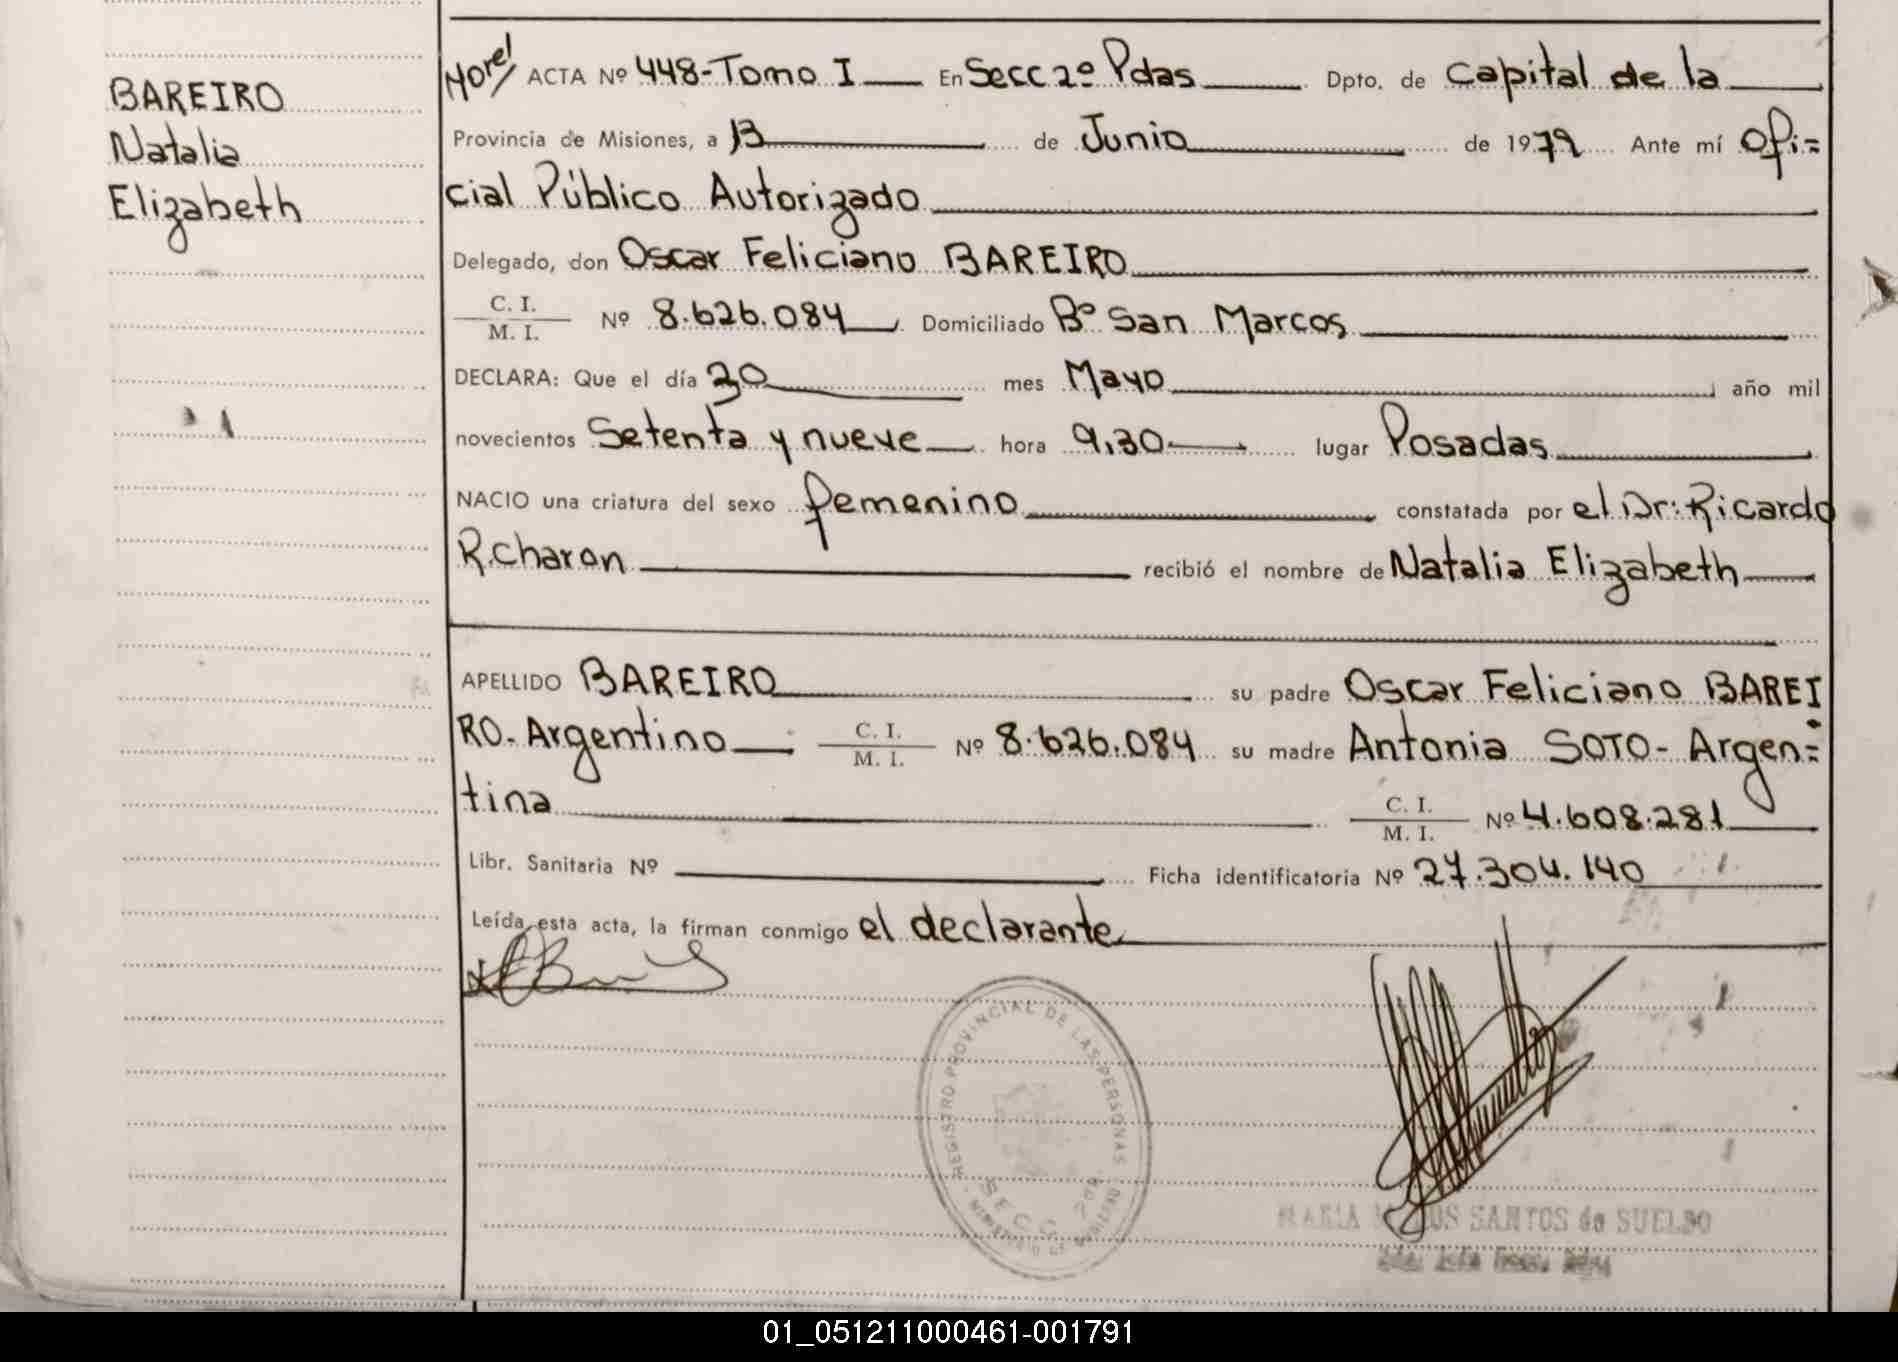 BAREIRO
Natalia
Elizabeth
ACTA Nº 448-Tomo I En Secc 2º Pdas Dpto. de Capital de la
Provincia de Misiones, a 13 de Junio de 1979 Ante mí Ofi=
cial Público Autorizado
Delegado, don Oscar Feliciano BAREIRO
C. I.
M. I. Nº 8.626.084 Domiciliado Bº San Marcos
DECLARA: Que el día 30 mes Mayo año mil
novecientos Setenta y nueve hora 9,30 lugar Posadas
NACIO una criatura del sexo femenino constatada por el Dr: Ricardo
R. Charon recibió el nombre de Natalia Elizabeth
APELLIDO BAREIRO su padre Oscar Feliciano BAREI
RO- Argentino C. I. M. I. Nº 8.626.084 su madre Antonia SOTO- Argen=
tina C. I. M. I. Nº 4.608.281
Libr. Sanitaria Nº Ficha identificatoria Nº 27.304.140
Leída esta acta, la firman conmigo el declarante
REGISTRO PROVINCIAL DE LAS PERSONAS
SECC. 2da
MINISTERIO DE GOBIERNO
MARIA SANTOS de SUELDO
01_051211000461-001791